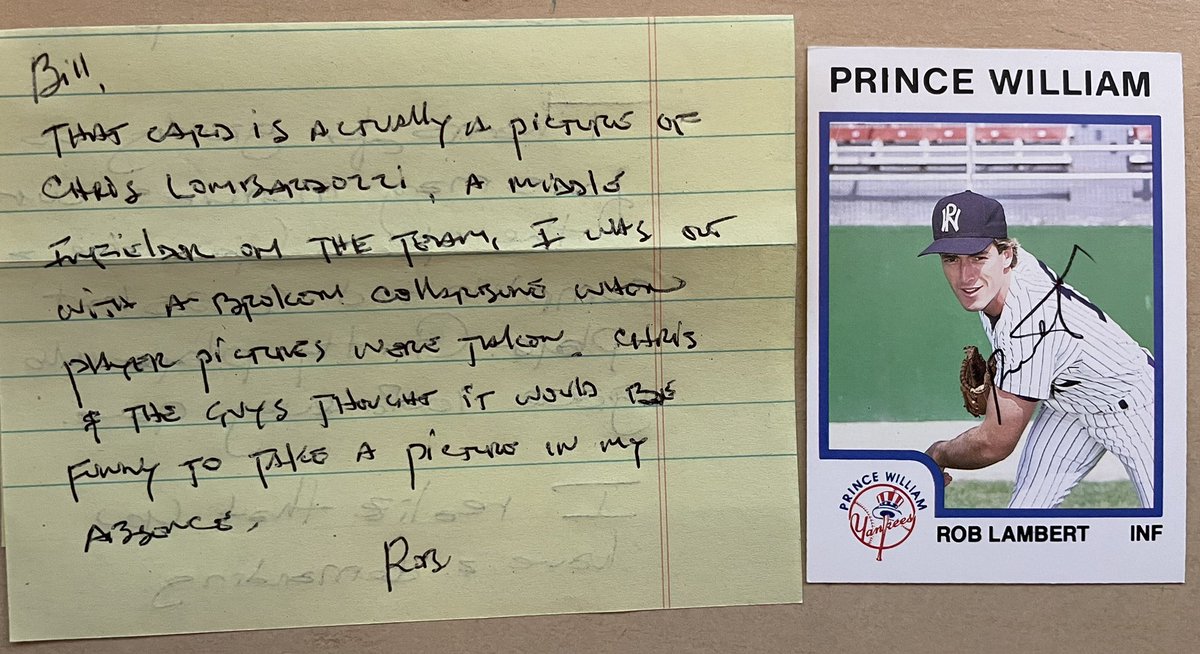 Bill,
THAT CARD iS ACTUALLY A PiCTURE OF
CHRiS LOMBARDOZZi, A MiDDLE
INFIELDER ON THE TEAM, I WAS OUT
WITH A BROKEN COLLARBONE WHEN
PLAYER PiCTURES WERE TAKEN. CHRIS
& THE GUYS THOUGHT iT WOULD BE
FUNNY TO TAKE A PiCTURE IN MY
ABSENCE.
ROB
PRINCE WILLIAM
NR
PRINCE WILLIAM
Yankees
ROB LAMBERT INF